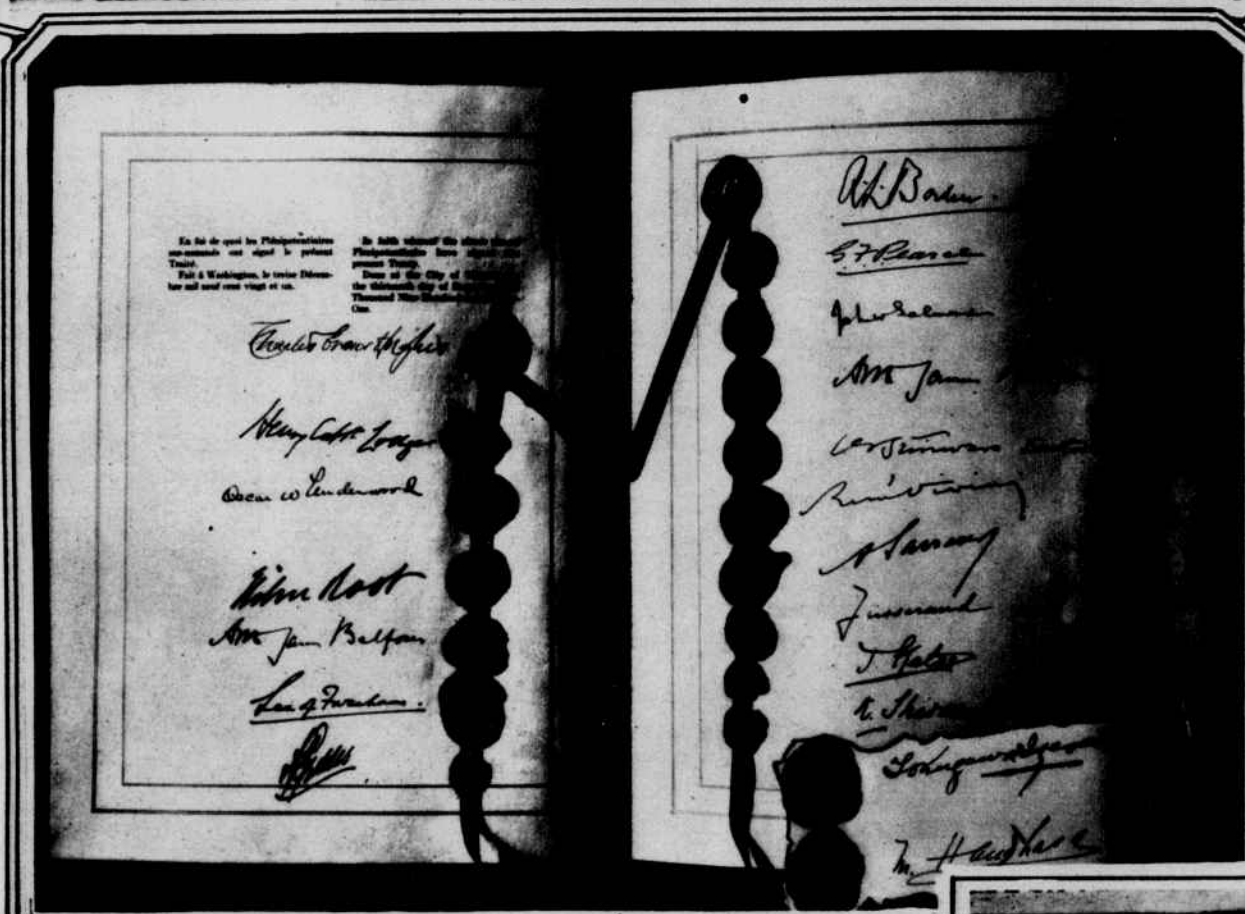 En foi de quoi les Plénipotentiaires
sus-nommés ont signé le présent
Traité.
Fait à Washington, le treize Décem-
bre mil neuf cent vingt et un.
In faith whereof the above named
Plenipotentiaries have signed the
present Treaty.
Done at the City of
the thirteenth day of
Thousand Nine Hundred
One.
Charles Evans Hughes
Henry Cabot Lodge
Oscar W Underwood
Elihu Root
Arthur James Balfour
Lee of Fareham.
R.L. Borden.
G.F. Pearce
John W Salmond
Arthur James
V S Srinivasa
René Viviani
A Sarraut
Jusserand
T. Kato
K. Shi
Tokugawa Iyesato
M. Hanihara